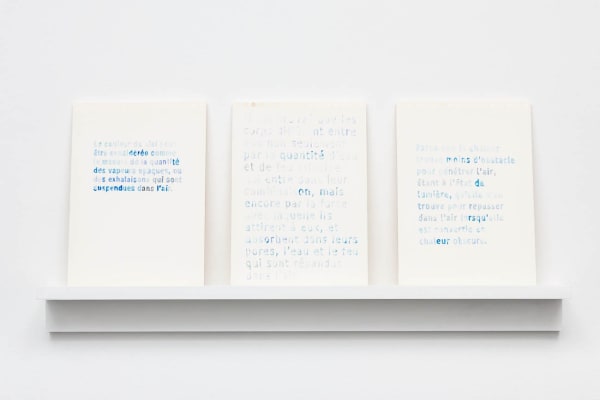 La couleur du ciel peut
être considérée comme
la mesure de la quantité
des vapeurs opaques, ou
des exhalaisons qui sont
suspendues dans l'air.
que les
corps diffèrent entre
eux non seulement
par la quantité d'eau
et de feu
qui entre dans leur
combinaison, mais
encore par la force
avec laquelle ils
attirent à eux, et
absorbent dans leurs
pores, l'eau et le feu
qui sont répandus
dans l'air.
Parce que la chaleur
trouve moins d'obstacle
pour pénétrer l'air,
étant à l'état de
lumière, qu'elle n'en
trouve pour repasser
dans l'air lorsqu'elle
est convertie en
chaleur obscure.